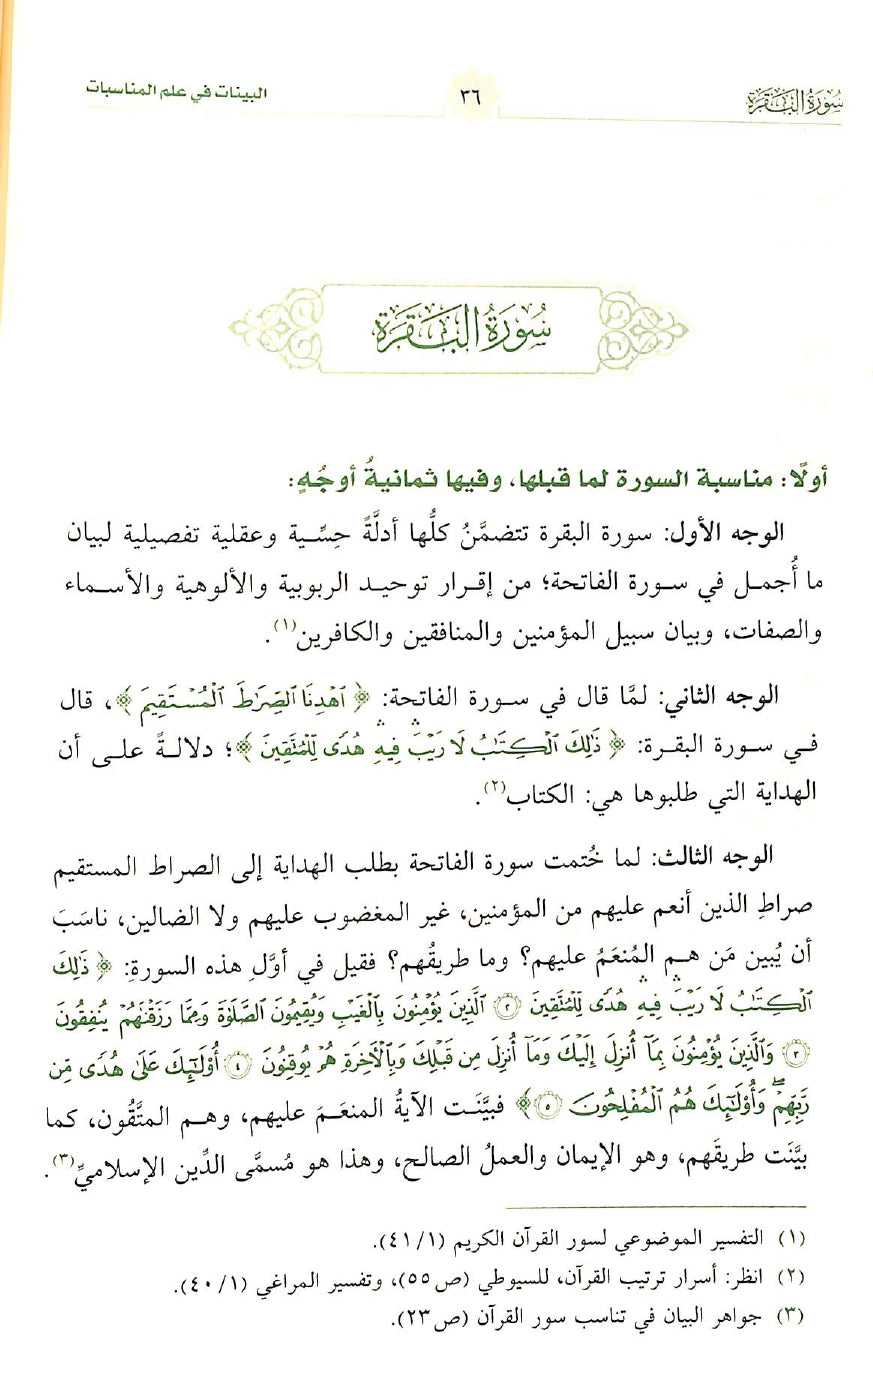 سُورَةُ البَقَرَةِ
٣٦
البينات في علم المناسبات
سُورَةُ البَقَرَةِ
أولًا: مناسبة السورة لما قبلها، وفيها ثمانيةُ أوجُهٍ:
الوجه الأول: سورة البقرة تتضمَّنُ كلُّها أدلَّةً حِسِّية وعقلية تفصيلية لبيان
ما أُجمل في سورة الفاتحة؛ من إقرار توحيد الربوبية والألوهية والأسماء
والصفات، وبيان سبيل المؤمنين والمنافقين والكافرين(١).
الوجه الثاني: لمَّا قال في سورة الفاتحة: ﴿ٱهْدِنَا ٱلصِّرَٰطَ ٱلْمُسْتَقِيمَ﴾، قال
في سورة البقرة: ﴿ذَٰلِكَ ٱلْكِتَٰبُ لَا رَيْبَ ۛ فِيهِ ۛ هُدًى لِّلْمُتَّقِينَ﴾؛ دلالةً على أن
الهداية التي طلبوها هي: الكتاب(٢).
الوجه الثالث: لما خُتمت سورة الفاتحة بطلب الهداية إلى الصراط المستقيم
صراطِ الذين أنعم عليهم من المؤمنين، غير المغضوب عليهم ولا الضالين، ناسَبَ
أن يُبين مَن هم المُنعَمُ عليهم؟ وما طريقُهم؟ فقيل في أوَّلِ هذه السورةِ: ﴿ذَٰلِكَ
ٱلْكِتَٰبُ لَا رَيْبَ ۛ فِيهِ ۛ هُدًى لِّلْمُتَّقِينَ ٢ ٱلَّذِينَ يُؤْمِنُونَ بِٱلْغَيْبِ وَيُقِيمُونَ ٱلصَّلَوٰةَ وَمِمَّا رَزَقْنَٰهُمْ يُنفِقُونَ
٣ وَٱلَّذِينَ يُؤْمِنُونَ بِمَآ أُنزِلَ إِلَيْكَ وَمَآ أُنزِلَ مِن قَبْلِكَ وَبِٱلْأٓخِرَةِ هُمْ يُوقِنُونَ ٤ أُوْلَٰٓئِكَ عَلَىٰ هُدًى مِّن
رَّبِّهِمْ ۖ وَأُوْلَٰٓئِكَ هُمُ ٱلْمُفْلِحُونَ ٥﴾ فبيَّنَت الآيةُ المنعَمَ عليهم، وهم المتَّقُون، كما
بيَّنَت طريقَهم، وهو الإيمان والعملُ الصالح، وهذا هو مُسمَّى الدِّين الإسلاميِّ(٣).
(١) التفسير الموضوعي لسور القرآن الكريم (٤١/١).
(٢) انظر: أسرار ترتيب القرآن، للسيوطي (ص٥٥)، وتفسير المراغي (٤٠/١).
(٣) جواهر البيان في تناسب سور القرآن (ص٢٣).